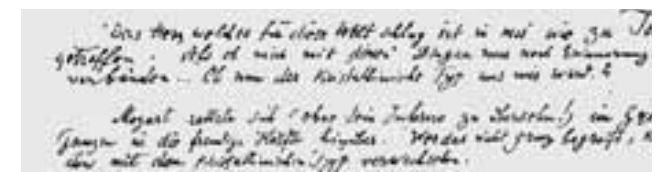 "Das Herz welches für diese Welt schlug ist in mir wie zu To
getroffen. Als ob mich mit diesen Dingen nur noch Erinnerung
verbänden ... Ob nun der kristallinische Typ aus mir wird?
Mozart rettete sich (ohne sein Inferno zu übersehn!) im
Ganzen in die freudige Hälfte hinüber. Wer das nicht ganz begreift,
den mit dem kristallinischen Typ verwechseln.